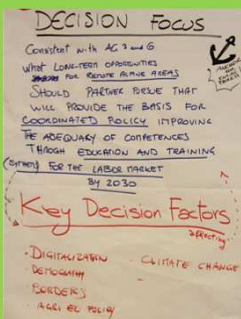 DECISION FOCUS
CONSISTENT WITH AG 3 AND 6
WHAT LONG-TERM OPPORTUNITIES
FOR REMOTE ALPINE AREAS
SHOULD PARTNER PURSUE THAT
WILL PROVIDE THE BASIS FOR
COORDINATED POLICY IMPROVING
THE ADEQUACY OF COMPETENCES
THROUGH EDUCATION AND TRAINING
(SYSTEMS) FOR THE LABOR MARKET
BY 2030
Key Decision Factors
affecting
- DIGITALIZATION
- CLIMATE CHANGE
DEMOGRAPHY
BORDERS
AGRI EL POLICY